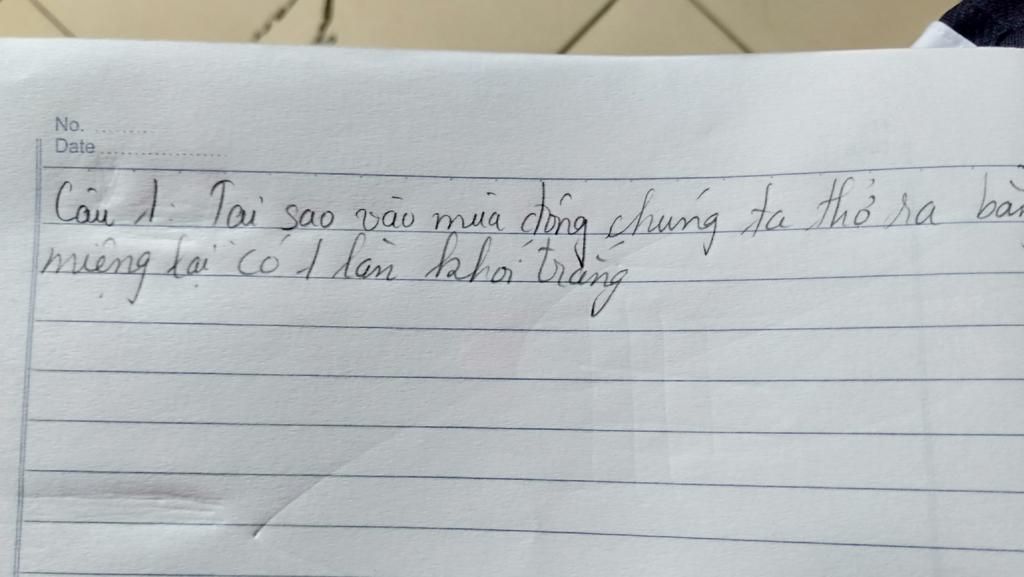 No. ..........
Date ......................
Câu 1: Tại sao vào mùa đông chúng ta thở ra
miệng lại có 1 làn khói trắng